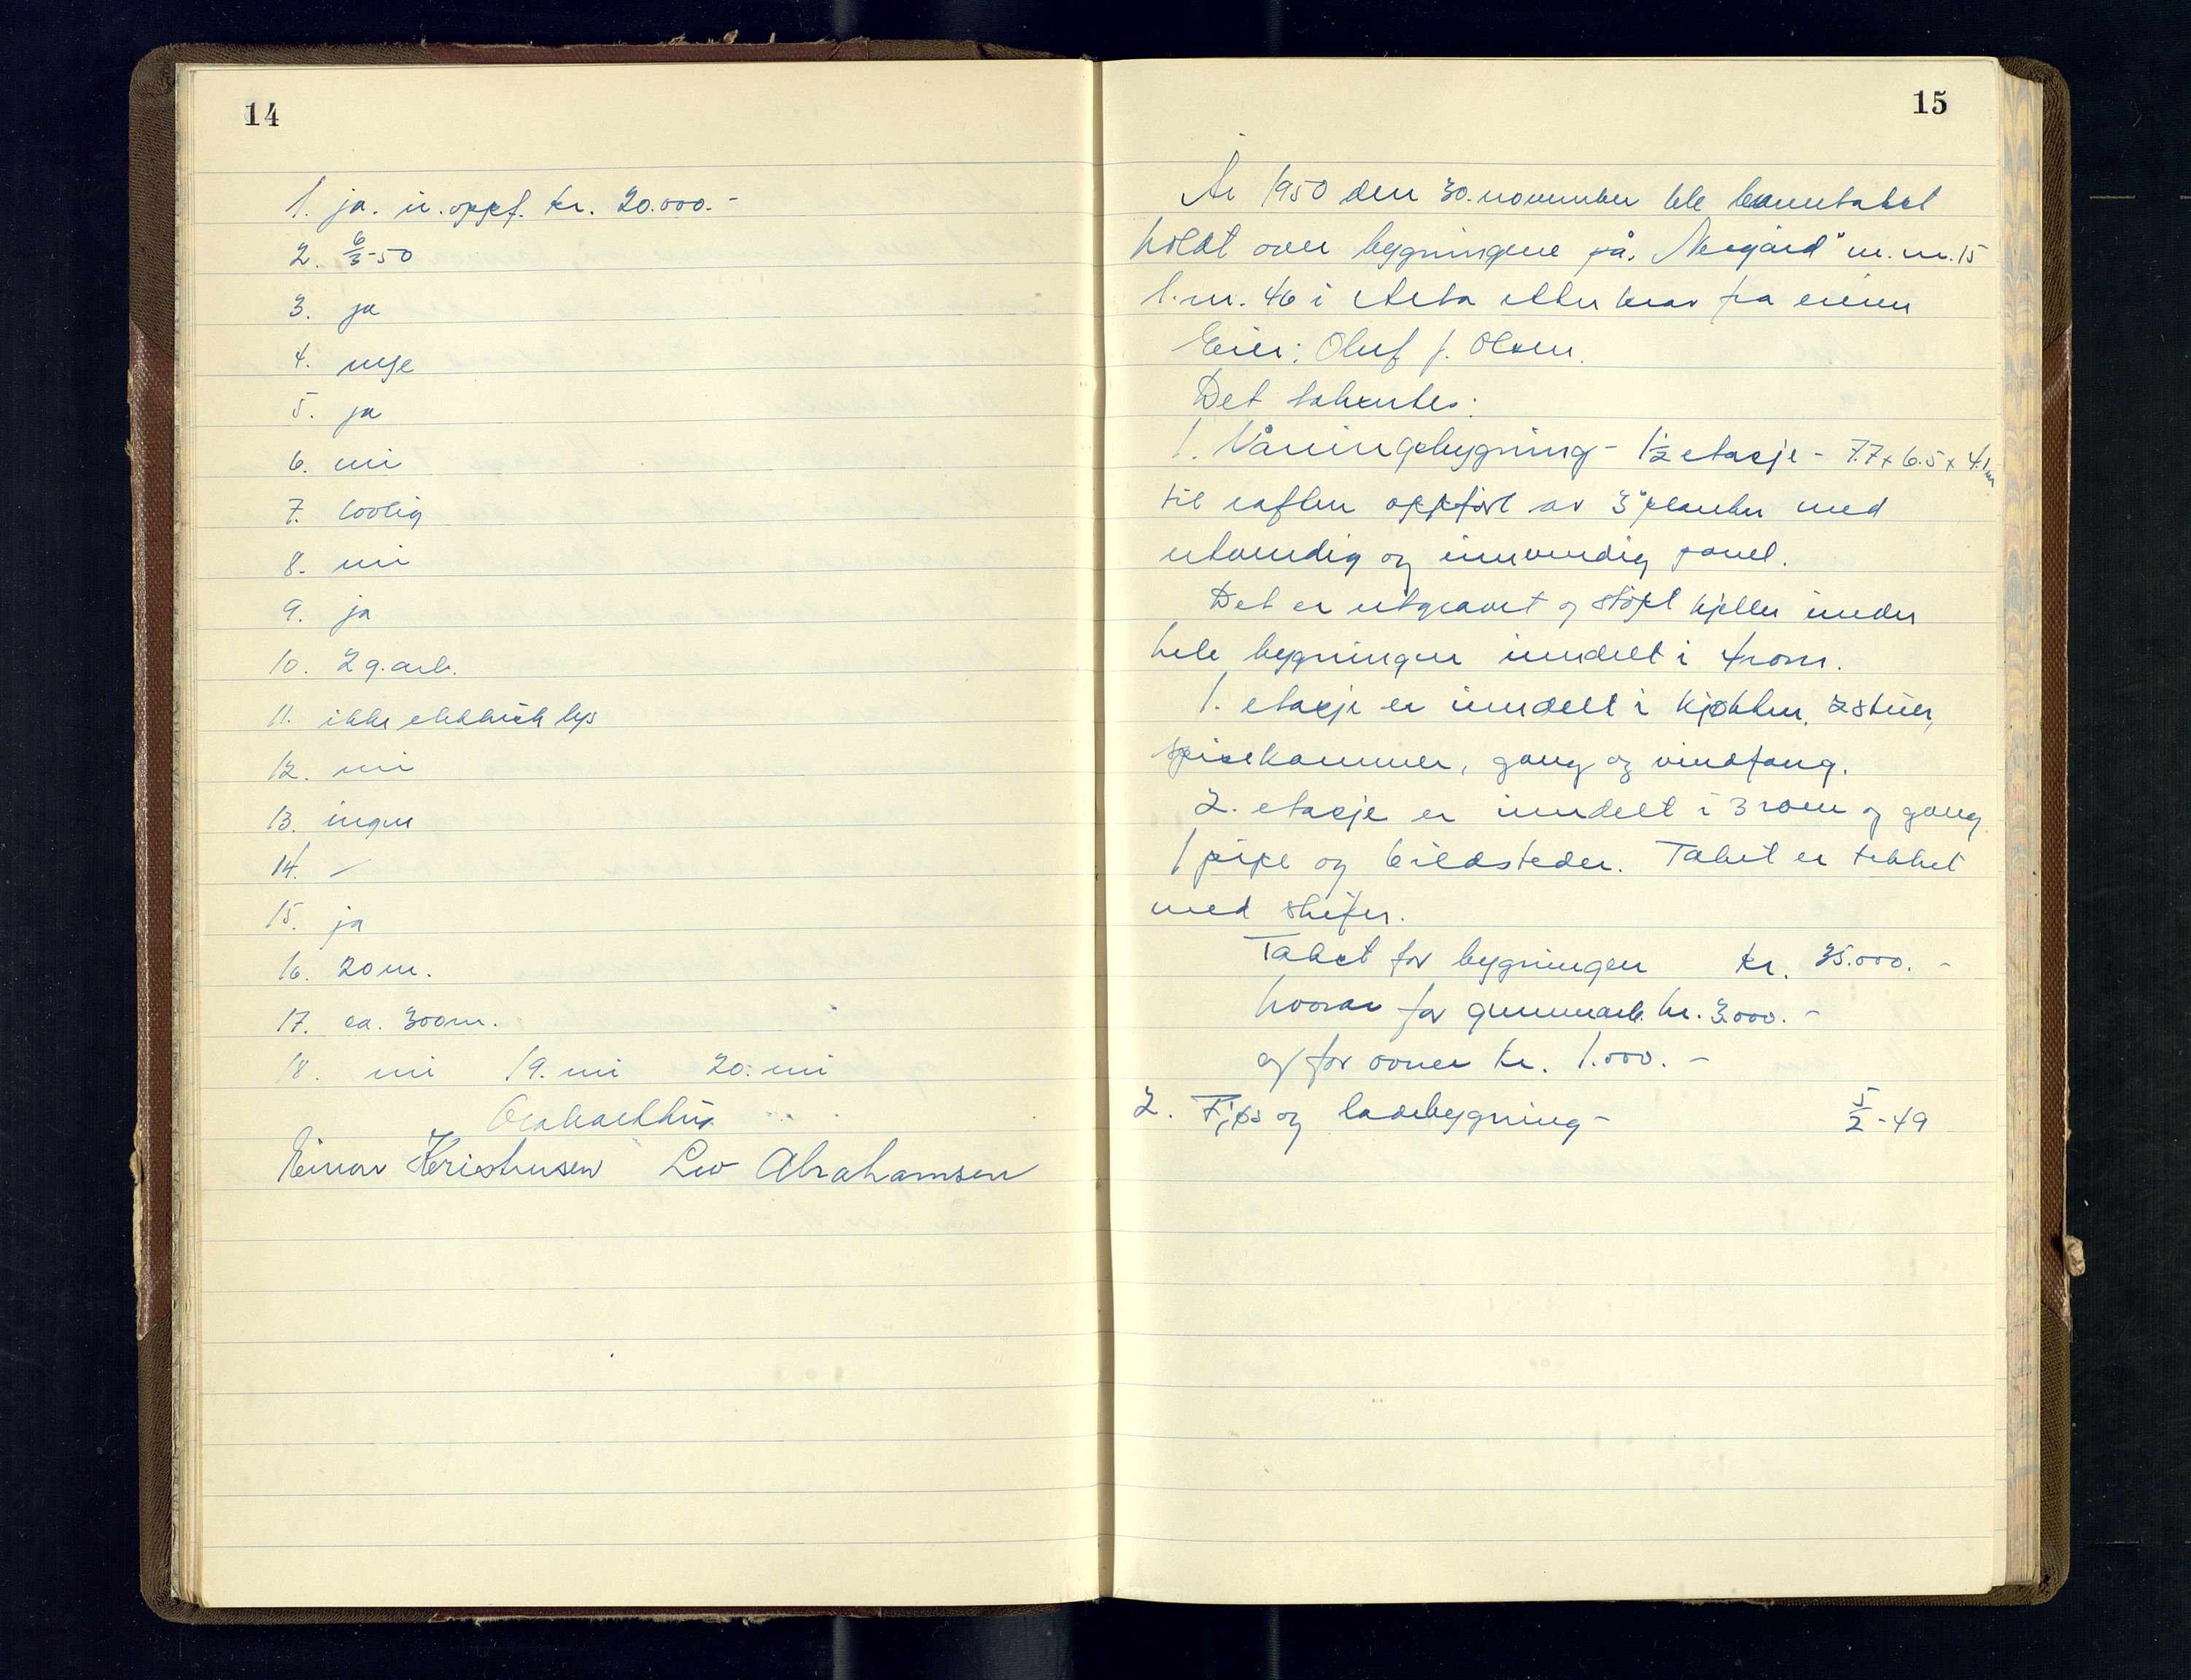 14
1. ja. u.oppf. kr. 20.000.-
2. 6/3-50
3. ja
4. nye
5. ja
6. nei
7. bolig
8. nei
9. ja
10. 2 g. arb.
11. ikke elektrisk lys
12. nei
13. ingen
14. -
15. ja
16. 20 m.
17. ca. 300 m.
18. nei 19. nei 20. nei
Einar Kristensen Leo Abrahamsen
15
År 1950 den 30. november ble branntakst
holdt over bygningene på "Nergård" m. nr. 15
l. nr. 46 i etter krav fra eieren
Eier: Oluf J. Olsen.
Det takertes:
1. Våningsbygning - 1½ etasje - 7.7 x 6.5 x 4.1 m
til raften oppført av 3" planker med
utvendig og innvendig panel.
Det er utgravet og støpt kjeller under
hele bygningen inndelt i 4 rom.
1. etasje er inndelt i kjøkken, 2 stuer,
spisekammer, gang og vindfang.
2. etasje er inndelt i 3 rom og gang
1 pipe og 6 ildsteder. Taket er tekket
med skifer.
Takst for bygningen kr. 35.000.-
hvorav for grunnarb. kr. 3.000.-
og for ovner kr. 1.000.-
2. Fjøs og ladebygning - 5/2-49